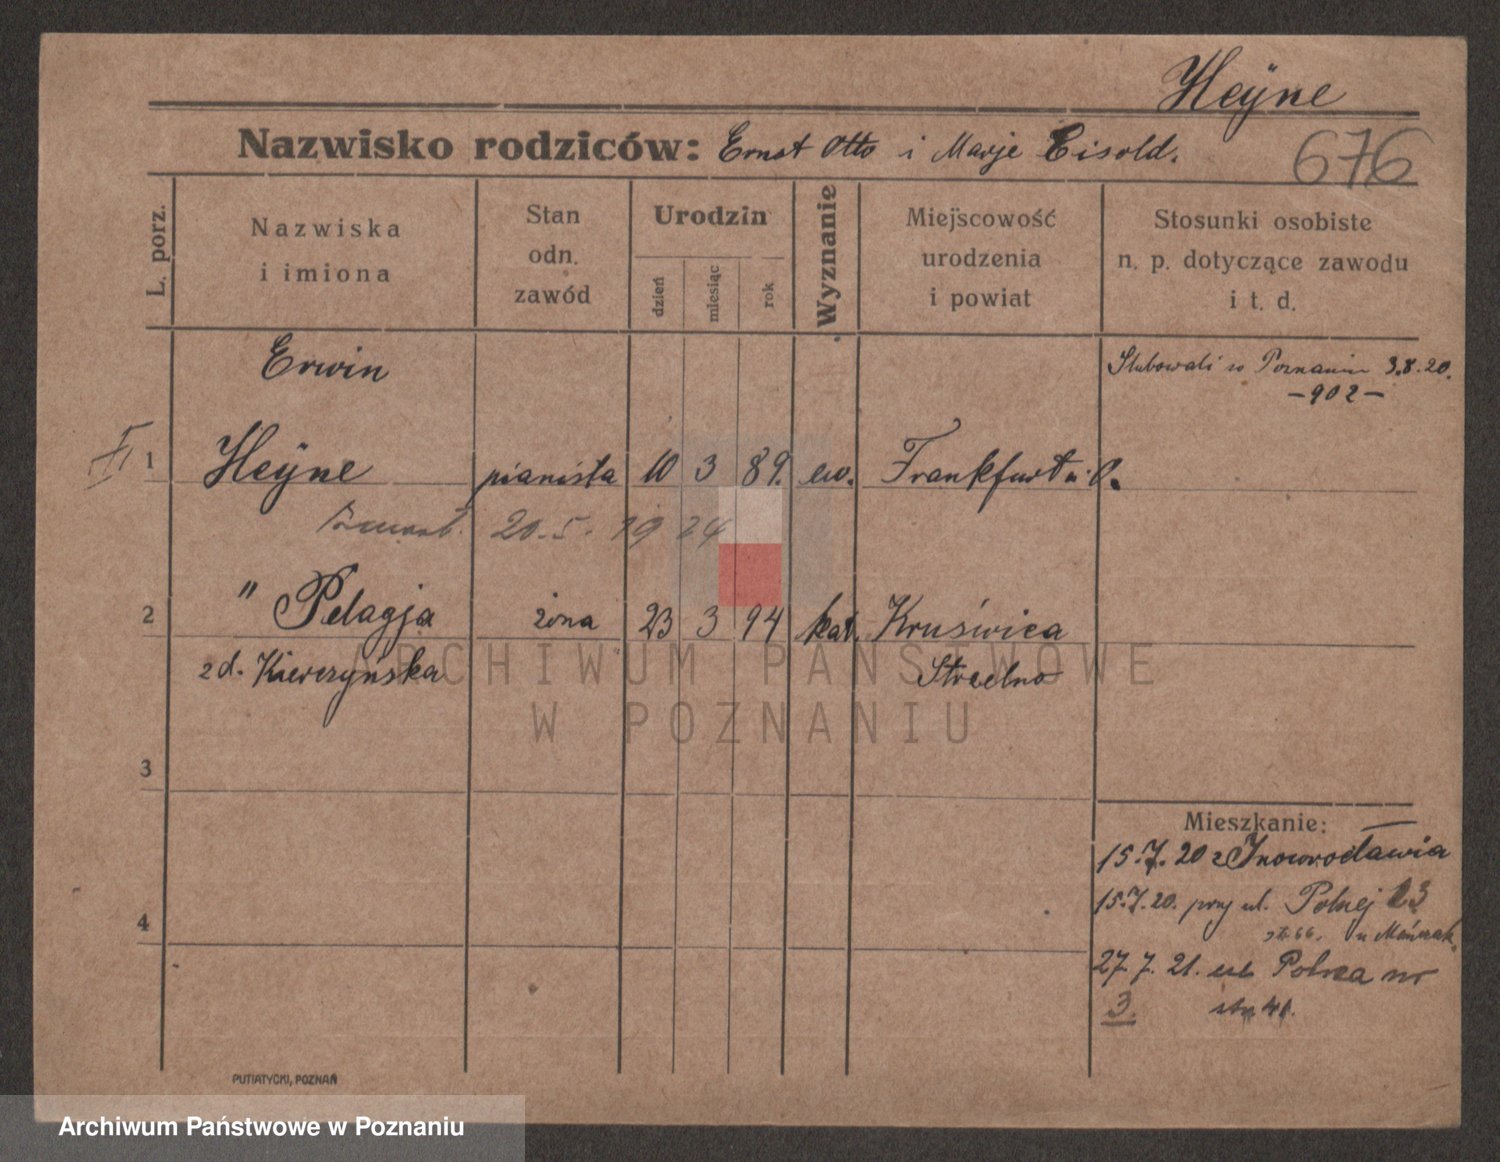 Heÿne
Nazwisko rodziców: Ernst Otto i Marje Eisold.
676
L. porz.
Nazwiska
i imiona
Stan
odn.
zawód
Urodzin
dzień
miesiąc
rok
Wyznanie
Miejscowość
urodzenia
i powiat
Stosunki osobiste
n. p. dotyczące zawodu
i t. d.
Erwin
Ślubowali w Poznaniu 3.8.20.
-902-
II 1 Heÿne pianista 10 3 89. ew. Frankfurt a. O.
20.5.1924
2 " Pelagja żona 23 3 94 kat. Kruświca
z d. Kierczyńska Strzelno
ARCHIWUM PAŃSTWOWE
W POZNANIU
3
Mieszkanie:
15.7.20 z Inowrocławia
15.7.20. przy ul. Polnej 23
4
27.7.21. ul. Polna nr
3. str 41.
PUTIATYCKI, POZNAŃ
Archiwum Państwowe w Poznaniu